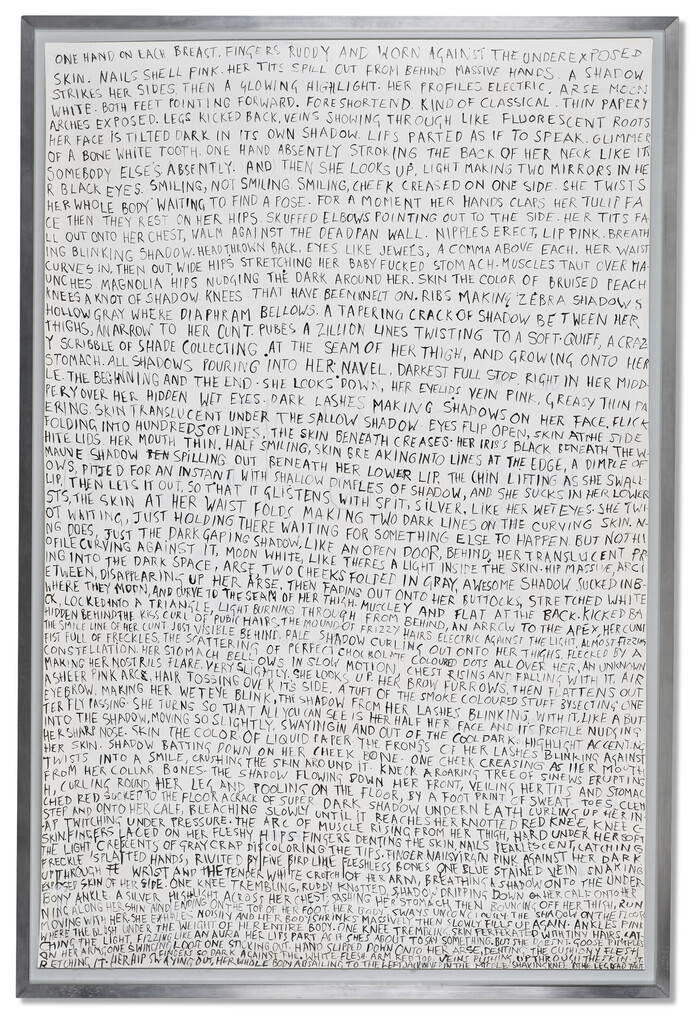 ONE HAND ON EACH BREAST. FINGERS RUDDY AND WORN AGAINST THE UNDEREXPOSED
SKIN. NAILS SHELL PINK. HER TITS SPILL OUT FROM BEHIND MASSIVE HANDS. A SHADOW
STRIKES HER SIDES, THEN A GLOWING HIGHLIGHT. HER PROFILES ELECTRIC. ARSE MOON
WHITE. BOTH FEET POINTING FORWARD. FORESHORTEND. KIND OF CLASSICAL. THIN PAPERY
ARCHES EXPOSED. LEGS KICKED BACK, VEINS SHOWING THROUGH LIKE FLUORESCENT ROOTS
HER FACE IS TILTED DARK IN ITS OWN SHADOW. LIPS PARTED AS IF TO SPEAK. GLIMMER
OF A BONE WHITE TOOTH. ONE HAND ABSENTLY STROKING THE BACK OF HER NECK LIKE IT
SOMEBODY ELSE'S ABSENTLY. AND THEN SHE LOOKS UP, LIGHT MAKING TWO MIRRORS IN HE
R BLACK EYES. SMILING, NOT SMILING. SMILING, CHEEK CREASED ON ONE SIDE. SHE TWISTS
HER WHOLE BODY WAITING TO FIND A POSE. FOR A MOMENT HER HANDS CLASP HER TULIP FA
CE THEN THEY REST ON HER HIPS. SKUFFED ELBOWS POINTING OUT TO THE SIDE. HER TITS FA
LL OUT ONTO HER CHEST, WALM AGAINST THE DEADPAN WALL. NIPPLES ERECT, LIP PINK. BREATH
ING BLINKING SHADOW. HEAD THROWN BACK. EYES LIKE JEWELS, A COMMA ABOVE EACH. HER WAIST
CURVES IN, THEN OUT, WIDE HIPS STRETCHING HER BABY FUCKED STOMACH. MUSCLES TAUT OVER HA
UNCHES MAGNOLIA HIPS NUDGING THE DARK AROUND HER. SKIN THE COLOR OF BRUISED PEACH
KNEES A KNOT OF SHADOW KNEES THAT HAVE BEEN KNELT ON. RIBS MAKING ZEBRA SHADOWS
HOLLOW GRAY WHERE DIAPHRAM BELLOWS. A TAPERING CRACK OF SHADOW BETWEEN HER
THIGHS, AN ARROW TO HER CUNT. PUBES A ZILLION LINES TWISTING TO A SOFT QUIFF, A CRAZ
Y SCRIBBLE OF SHADE COLLECTING AT THE SEAM OF HER THIGH, AND GROWING ONTO HER
STOMACH. ALL SHADOWS POURING INTO HER NAVEL, DARKEST FULL STOP, RIGHT IN HER MIDD
LE. THE BEGINNING AND THE END. SHE LOOKS DOWN, HER EYELIDS VEIN PINK, GREASY THIN PA
PERY OVER HER HIDDEN WET EYES. DARK LASHES MAKING SHADOWS ON HER FACE, FLICK
ERING. SKIN TRANSLUCENT UNDER THE SALLOW SHADOW. EYES FLIP OPEN, SKIN AT THE SIDE
FOLDING INTO HUNDREDS OF LINES, THE SKIN BENEATH CREASES. HER IRIS'S BLACK BENEATH THE W
HITE LIDS HER MOUTH THIN, HALF SMILING, SKIN BREAKING INTO LINES AT THE EDGE, A DIMPLE OF
MAUVE SHADOW SPILLING OUT BENEATH HER LOWER LIP. THE CHIN LIFTING AS SHE SWALL
OWS, PITTED FOR AN INSTANT WITH SHALLOW DIMPLES OF SHADOW, AND SHE SUCKS IN HER LOWER
LIP, THEN LETS IT OUT, SO THAT IT GLISTENS WITH SPIT, SILVER, LIKE HER WET EYES. SHE TWI
STS, THE SKIN AT HER WAIST FOLDS MAKING TWO DARK LINES ON THE CURVING SKIN. N
OT WAITING, JUST HOLDING THERE WAITING FOR SOMETHING ELSE TO HAPPEN. BUT NOTHI
NG DOES, JUST THE DARK GAPING SHADOW, LIKE AN OPEN DOOR, BEHIND, HER TRANSLUCENT PR
OFILE CURVING AGAINST IT, MOON WHITE, LIKE THERES A LIGHT INSIDE THE SKIN. HIP MASSIVE, ARCI
NG INTO THE DARK SPACE, ARSE, TWO CHEEKS FOLDED IN GRAY, AWESOME SHADOW SUCKED INB
ETWEEN, DISAPPEARING UP HER ARSE, THEN FADING OUT ONTO HER BUTTOCKS, STRETCHED WHITE
WHERE THEY MOON, AND CURVE TO THE SEAM OF HER THIGH. MUSCLEY AND FLAT AT THE BACK. KICKED BA
CK, LOCKED INTO A TRIANGLE, LIGHT BURNING THROUGH FROM BEHIND, AN ARROW TO THE APEX, HER CUNT
HIDDEN BEHIND THE KISS CURL OF PUBIC HAIRS. THE MOUND OF FRIZZY HAIRS ELECTRIC AGAINST THE LIGHT, ALMOST FIZZING
THE SMILE LINE OF HER CUNT JUST VISIBLE BEHIND. PALE SHADOW CURLING OUT ONTO HER THIGHS, FLECKED BY A
FIST FULL OF FRECKLES. THE SCATTERING OF PERFECT CHOCKOLATE COLOURED DOTS ALL OVER HER, AN UNKNOWN
CONSTELLATION. HER STOMACH BELLOWS IN SLOW MOTION, CHEST RISING AND FALLING WITH IT. AIR
MAKING HER NOSTRILS FLARE. VERY SLIGHTLY. SHE LOOKS UP. HER BROW FURROWS, THEN FLATTENS OUT
A SHEER PINK ARCH, HAIR TOSSING OVER IT'S SIDE, A TUFT OF THE SMOKE COLOURED STUFF BYSECTING ONE
EYEBROW. MAKING HER WET EYE BLINK, THE SHADOW FROM HER LASHES BLINKING WITH IT, LIKE A BUT
TERFLY PASSING. SHE TURNS SO THAT ALL YOU CAN SEE IS HER HALF HER FACE AND ITS PROFILE NUDGING
INTO THE SHADOW, MOVING SO SLIGHTLY, SWAYING IN AND OUT OF THE COOL DARK. HIGHLIGHT ACCENTING
HER SHARP NOSE. SKIN THE COLOR OF LIQUID PAPER THE FRONDS OF HER LASHES BLINKING AGAINST
HER SKIN. SHADOW BATTING DOWN ON HER CHEEK BONE. ONE CHEEK CREASING AS HER MOUTH
TWISTS INTO A SMILE, CRUSHING THE SKIN AROUND IT. KNECK A ROARING TREE OF SINEWS ERUPTING
FROM HER COLLAR BONES. THE SHADOW FLOWING DOWN HER FRONT, VEILING HER TITS AND STOMAC
H, CURLING ROUND HER LEG AND POOLING ON THE FLOOR, BY A FOOT PRINT OF SWEAT TOES CLEN
CHED RED SUCKED TO THE FLOOR A CRACK OF SUPER DARK SHADOW UNDERNEATH CURLING UP HER IN
STEP AND ONTO HER CALF, BLEACHING SLOWLY UNTIL IT REACHES HER KNOTTED RED KNEE, KNEE C
AP TWITCHING UNDER PRESSURE. THE ARC OF MUSCLE RISING FROM HER THIGH, HARD UNDER HER SOFT
SKIN FINGERS LACED ON HER FLESHY HIPS FINGERS DENTING THE SKIN, NAILS PEARLESCENT, CATCHING
THE LIGHT CRESCENTS OF GRAY CRAP DISCOLORING THE TIPS. FINGER NAILS VIRGIN PINK AGAINST HER DARK
FRECKLE SPLATTED HANDS, RIVITED BY FIVE BIRD LIKE FLESHLESS BONES ONE BLUE STAINED VEIN SNAKING
UP THROUGH THE WRIST AND THE TENDER WHITE CROTCH OF HER ARM, BREATHING A SHADOW ONTO THE UNDER
EXPOSED SKIN OF HER SIDE. ONE KNEE TREMBLING, RUDDY KNOTTED, SHADOW DRIPPING DOWN HER CALF ONTO HER
BONY ANKLE A SILVER HIGHLIGHT ACROSS HER CHEST, LASHING HER STOMACH THEN RUNNING OF HER THIGH, RUN
NING ALONG HER SHIN AND ENDING ON THE TOP OF HER FOOT HER BODY SWAYS UNCONCIOUSLY THE SHADOW ON THE FLOOR
MOVING WITH HER SHE EXHALES NOISILY AND HER BODY SHRINKS MASSIVELY THEN SLOWLY FILLS UP AGAIN. ANKLES PINK
WHERE THE BLUSH UNDER THE WEIGHT OF HER ENTIRE BODY. ONE KNEE TREMBLING SKIN PERFERATED WITH TINY HAIRS CAT
CHING THE LIGHT, FIZZING LIKE AN AURA HER LITS PART AS IF SHES ABOUT TO SAY SOMETHING. BUT SHE DOESN'T. GOOSE PIMPLES
ON HER ARM, ONE SWINGING LOOSE ONE STICKING OUT. HAND SLIPPED DOWN ONTO HER ARSE, DENTING THE CUSHIONY FLESH
FINGERS SO DARK AGAINST THE WHITE FLESH ARM RED TOO. VEINS PUSHING UP THROUGH THE SKIN. ST
RETCHING IT. HER HIP SWAYING OUT, HER WHOLE BODY ABSAILING TO THE LEFT IN THE MIDDLE SHAKING KNEE THE LEG DEAD TAUT